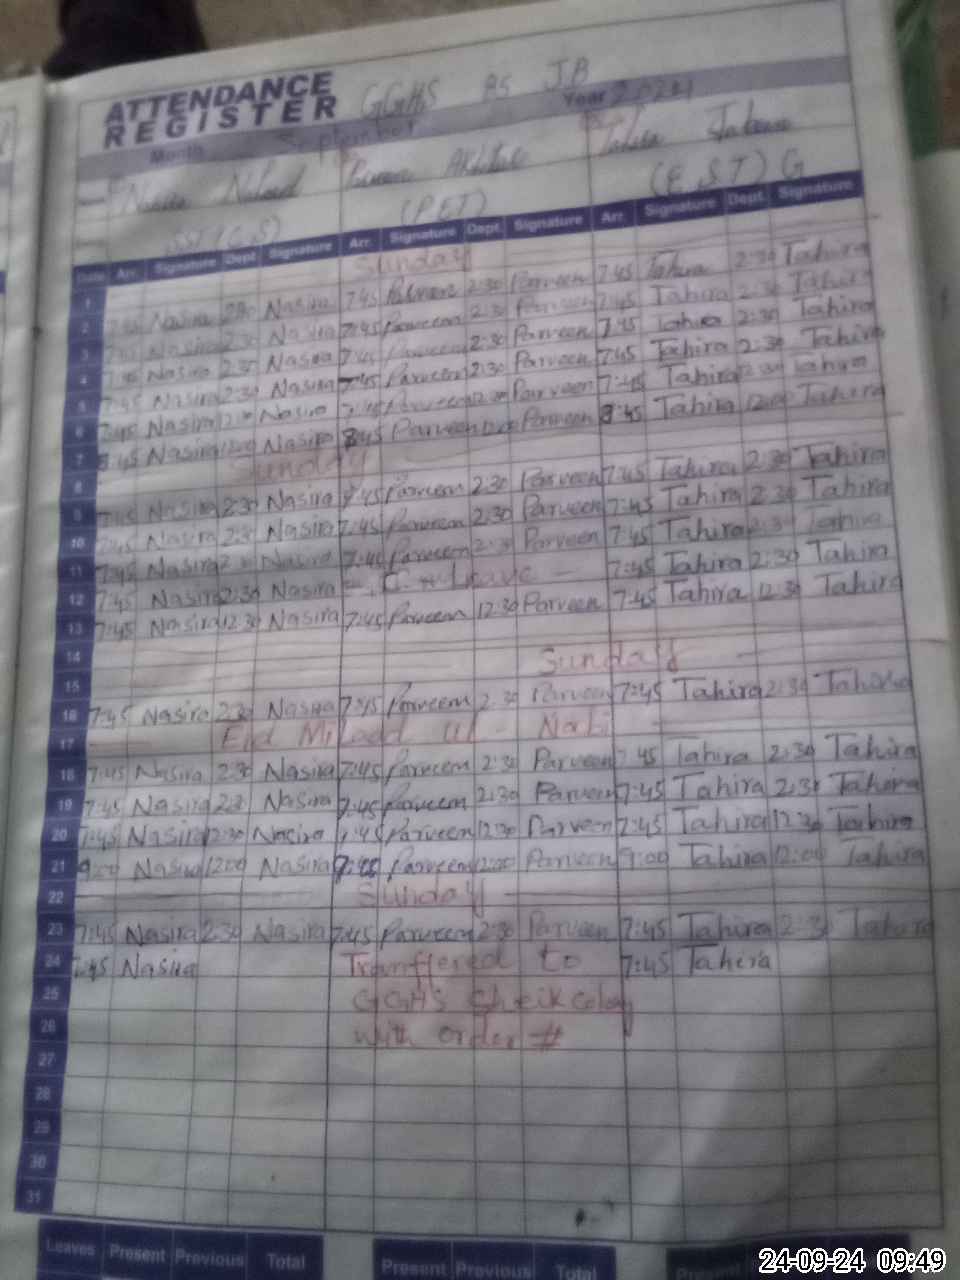 ATTENDANCE GGHS 85 J.B
REGISTER Year 2024
Month September
(PET) (E.S.T) G
Date Arr. Signature Dept. Signature Arr. Signature Dept. Signature Arr. Signature Dept. Signature
1 Sunday
2 Nasira 2:30 Nasira 7:45 Parveen 2:30 Parveen 7:45 Tahira 2:30 Tahira
3 Nasira 2:30 Nasira 7:45 Parveen 2:30 Parveen 7:45 Tahira 2:30 Tahira
4 Nasira 2:30 Nasira 7:45 Parveen 2:30 Parveen 7:45 Tahira 2:30 Tahira
5 7:45 Nasira 2:30 Nasira 7:45 Parveen 2:30 Parveen 7:45 Tahira 2:30 Tahira
6 7:45 Nasira Nasira 7:45 Parveen Parveen 7:45 Tahira Tahira
7 8:45 Nasira 12:00 Nasira 8:45 Parveen Parveen 8:45 Tahira 12:00 Tahira
8 Sunday
9 7:45 Nasira 2:30 Nasira 7:45 Parveen 2:30 Parveen 7:45 Tahira 2:30 Tahira
10 7:45 Nasira 2:30 Nasira 7:45 Parveen 2:30 Parveen 7:45 Tahira 2:30 Tahira
11 7:45 Nasira Nasira Parveen 2:30 Parveen 7:45 Tahira 2:30 Tahira
12 7:45 Nasira 2:30 Nasira Leave 7:45 Tahira 2:30 Tahira
13 7:45 Nasira 12:30 Nasira 7:45 Parveen 12:30 Parveen 7:45 Tahira 12:30 Tahira
14
15 Sunday
16 7:45 Nasira 2:30 Nasira 7:45 Parveen 2:30 Parveen 7:45 Tahira 2:30 Tahira
17 Eid Milad Ul - Nabi
18 7:45 Nasira 2:30 Nasira 7:45 Parveen 2:30 Parveen 7 45 Tahira 2:30 Tahira
19 7:45 Nasira 2:30 Nasira 7:45 Parveen 2:30 Parveen 7:45 Tahira 2:30 Tahira
20 7:45 Nasira 12:30 Nasira 7:45 Parveen 12:30 Parveen 7:45 Tahira 12:30 Tahira
21 9:00 Nasira 12:00 Nasira Parveen 12:00 Parveen 9:00 Tahira 12:00 Tahira
22 Sunday
23 7:45 Nasira 2:30 Nasira 7:45 Parveen 2:30 Parveen 7:45 Tahira 2:30 Tahira
24 7:45 Nasira Tranffered to 7:45 Tahira
25 GGHS Sheik colony
26 with order #
27
28
29
30
31
Leaves Present Previous Total Present Previous Total
24-09-24 09:49